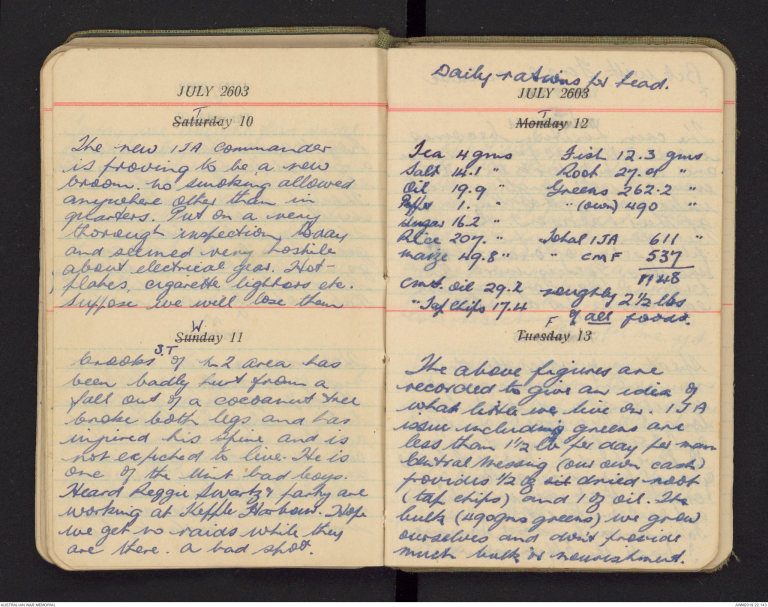 JULY 2603
T
Saturday 10
The new IJA commander
is proving to be a new
broom. No smoking allowed
anywhere other than in
quarters. Put on a very
thorough inspection today
and seemed very hostile
about electrical gear. Hot-
plates, cigarette lighters etc.
Suppose we will lose them
W
Sunday 11
Crooks J.T. of No 2 area has
been badly hurt from a
fall out of a cocoanut tree
broke both legs and has
injured his spine and is
not expected to live. He is
one of the Unit bad boys.
Heard Reggie Swartz & party are
working at Keffle Harbour. Hope
we get no raids while they
are there. A bad spot.
Daily rations per head.
JULY 2603
T
Monday 12
Tea 4 gms Fish 12.3 gms
Salt 14.1 " Root 27.0 "
Oil 19.9 " Greens 262.2 "
1. " " (own) 490 "
Sugar 16.2 "
Rice 207. " Total IJA 611 "
Maize 49.8 " " CMF 537
1148
Cmt. oil 29.2 roughly 2½ lbs
" Tap Chips 17.4 of all foods.
F
Tuesday 13
The above figures are
recorded to give an idea of
what little we live on. IJA
issue including greens are
less than 1½ lb per day per man
Central Messing (our own cash)
provides ½ oz dried root
(tap chips) and 1 oz oil. The
bulk (490gms greens) we grow
ourselves and don't provide
much bulk or nourishment.
AUSTRALIAN WAR MEMORIAL